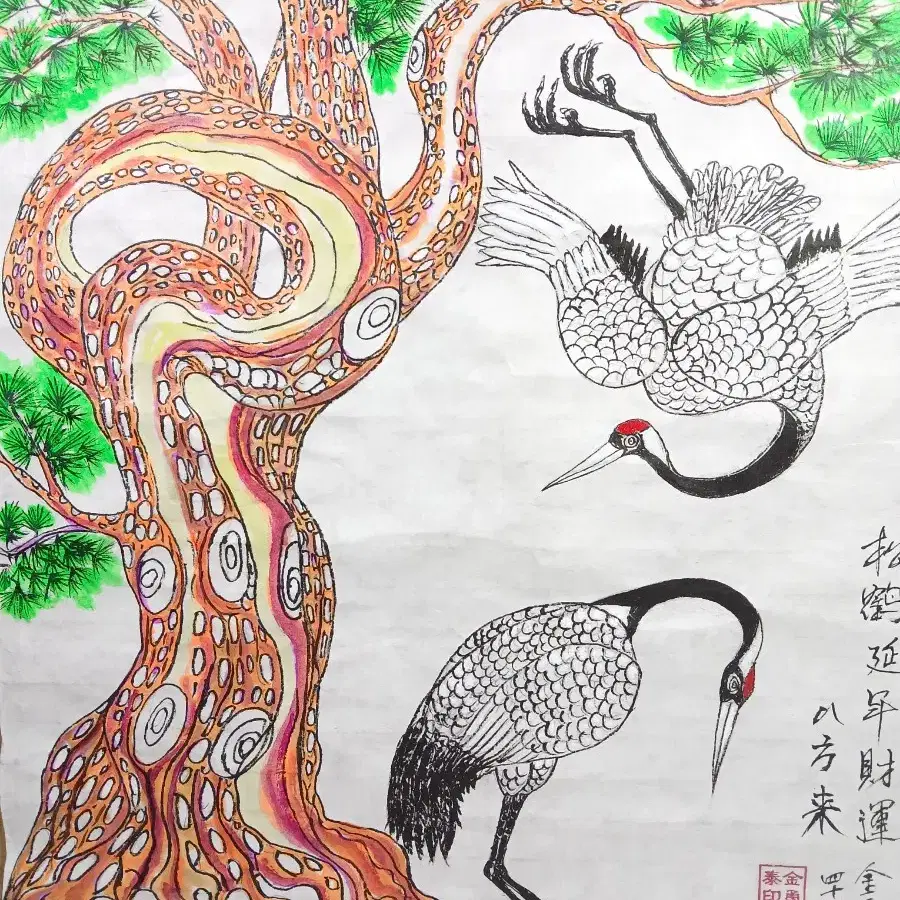 松鶴延年財運
金
八方来
四
金
泰印